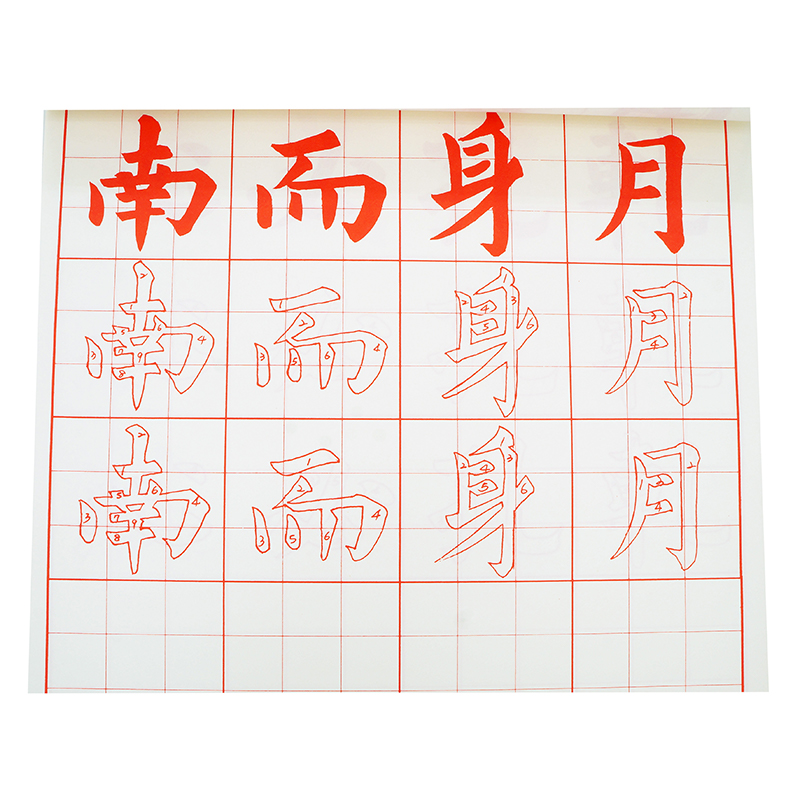 南而身月
南而身月
南而身月